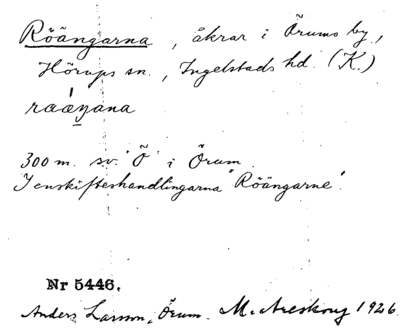 Röängarna, åkrar i Örums by,
Hörups sn., Ingelstads hd. (K.)
raaŋana
300 m. sv. "Ö" i Örum.
I enskifteshandlingarna "Röängarne".
Nr 5446.
Anders Larsson, Örum. M. Areskoug 1926.